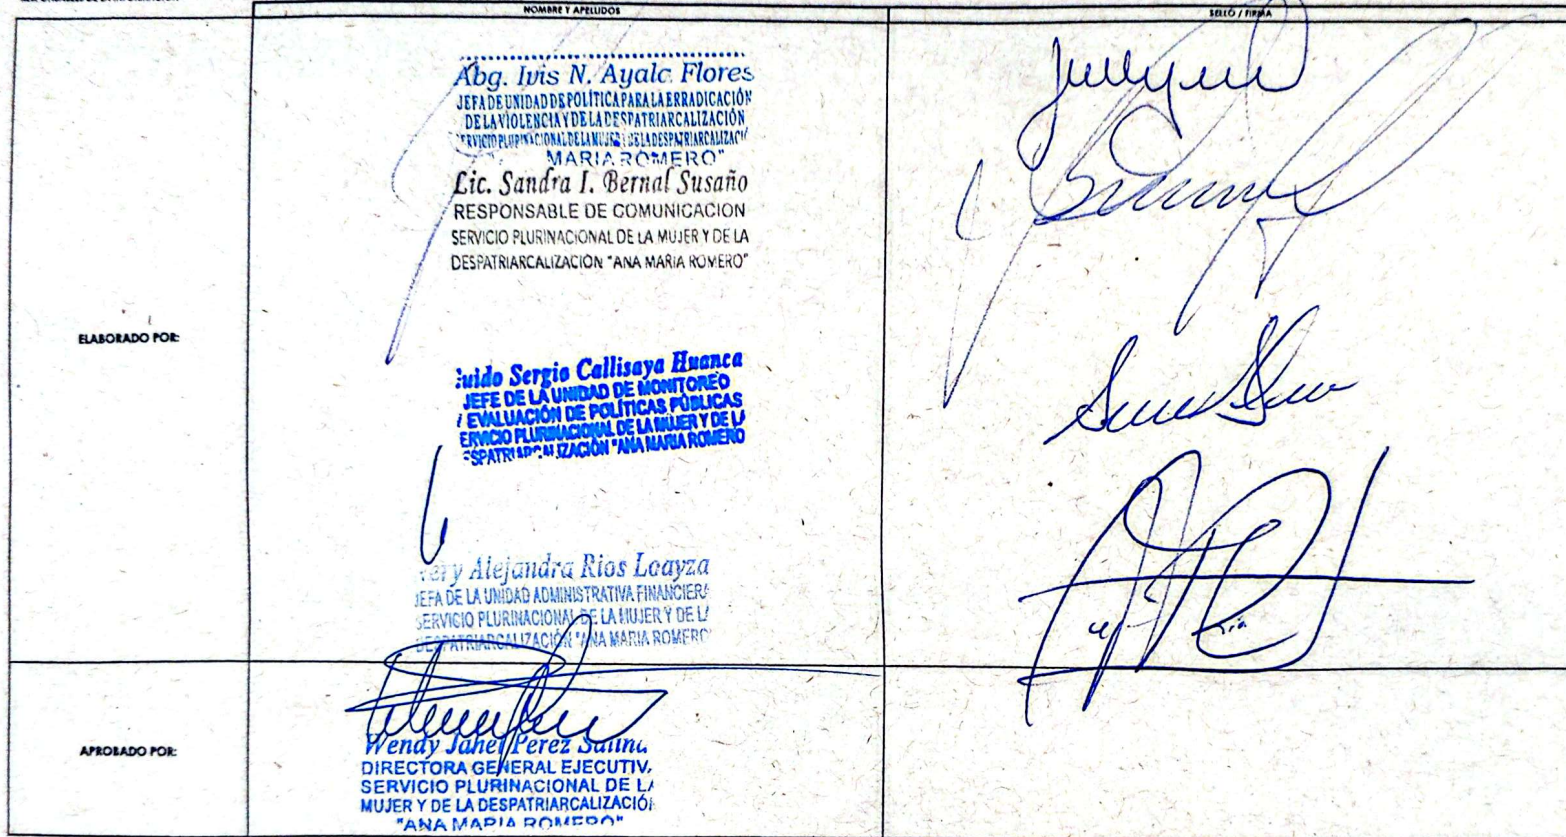 NOMBRE Y APELLIDOS
SELLO / FIRMA
Abg. Ivis N. Ayalc Flores
JEFA DE UNIDAD DE POLÍTICA PARA LA ERRADICACIÓN
DE LA VIOLENCIA Y DE LA DESPATRIARCALIZACIÓN
MARIA ROMERO"
Lic. Sandra I. Bernal Susaño
RESPONSABLE DE COMUNICACION
SERVICIO PLURINACIONAL DE LA MUJER Y DE LA
DESPATRIARCALIZACION "ANA MARIA ROMERO"
ELABORADO POR:
uido Sergio Callisaya Huanca
JEFE DE LA UNIDAD DE MONITOREO
EVALUACIÓN DE POLÍTICAS PÚBLICAS
ERVICIO PLURINACIONAL DE LA MUJER Y DE LA
"ANA MARIA ROMERO
Alejandra Rios Loayza
JEFA DE LA UNIDAD ADMINISTRATIVA FINANCIER
SERVICIO PLURINACIONAL DE LA MUJER Y DE L
DESPATRIARCALIZACIÓN "ANA MARIA ROMERO"
APROBADO POR:
Wendy Jahel Perez Salina
DIRECTORA GENERAL EJECUTIV
SERVICIO PLURINACIONAL DE LA
MUJER Y DE LA DESPATRIARCALIZACIÓ
"ANA MARIA ROMERO"